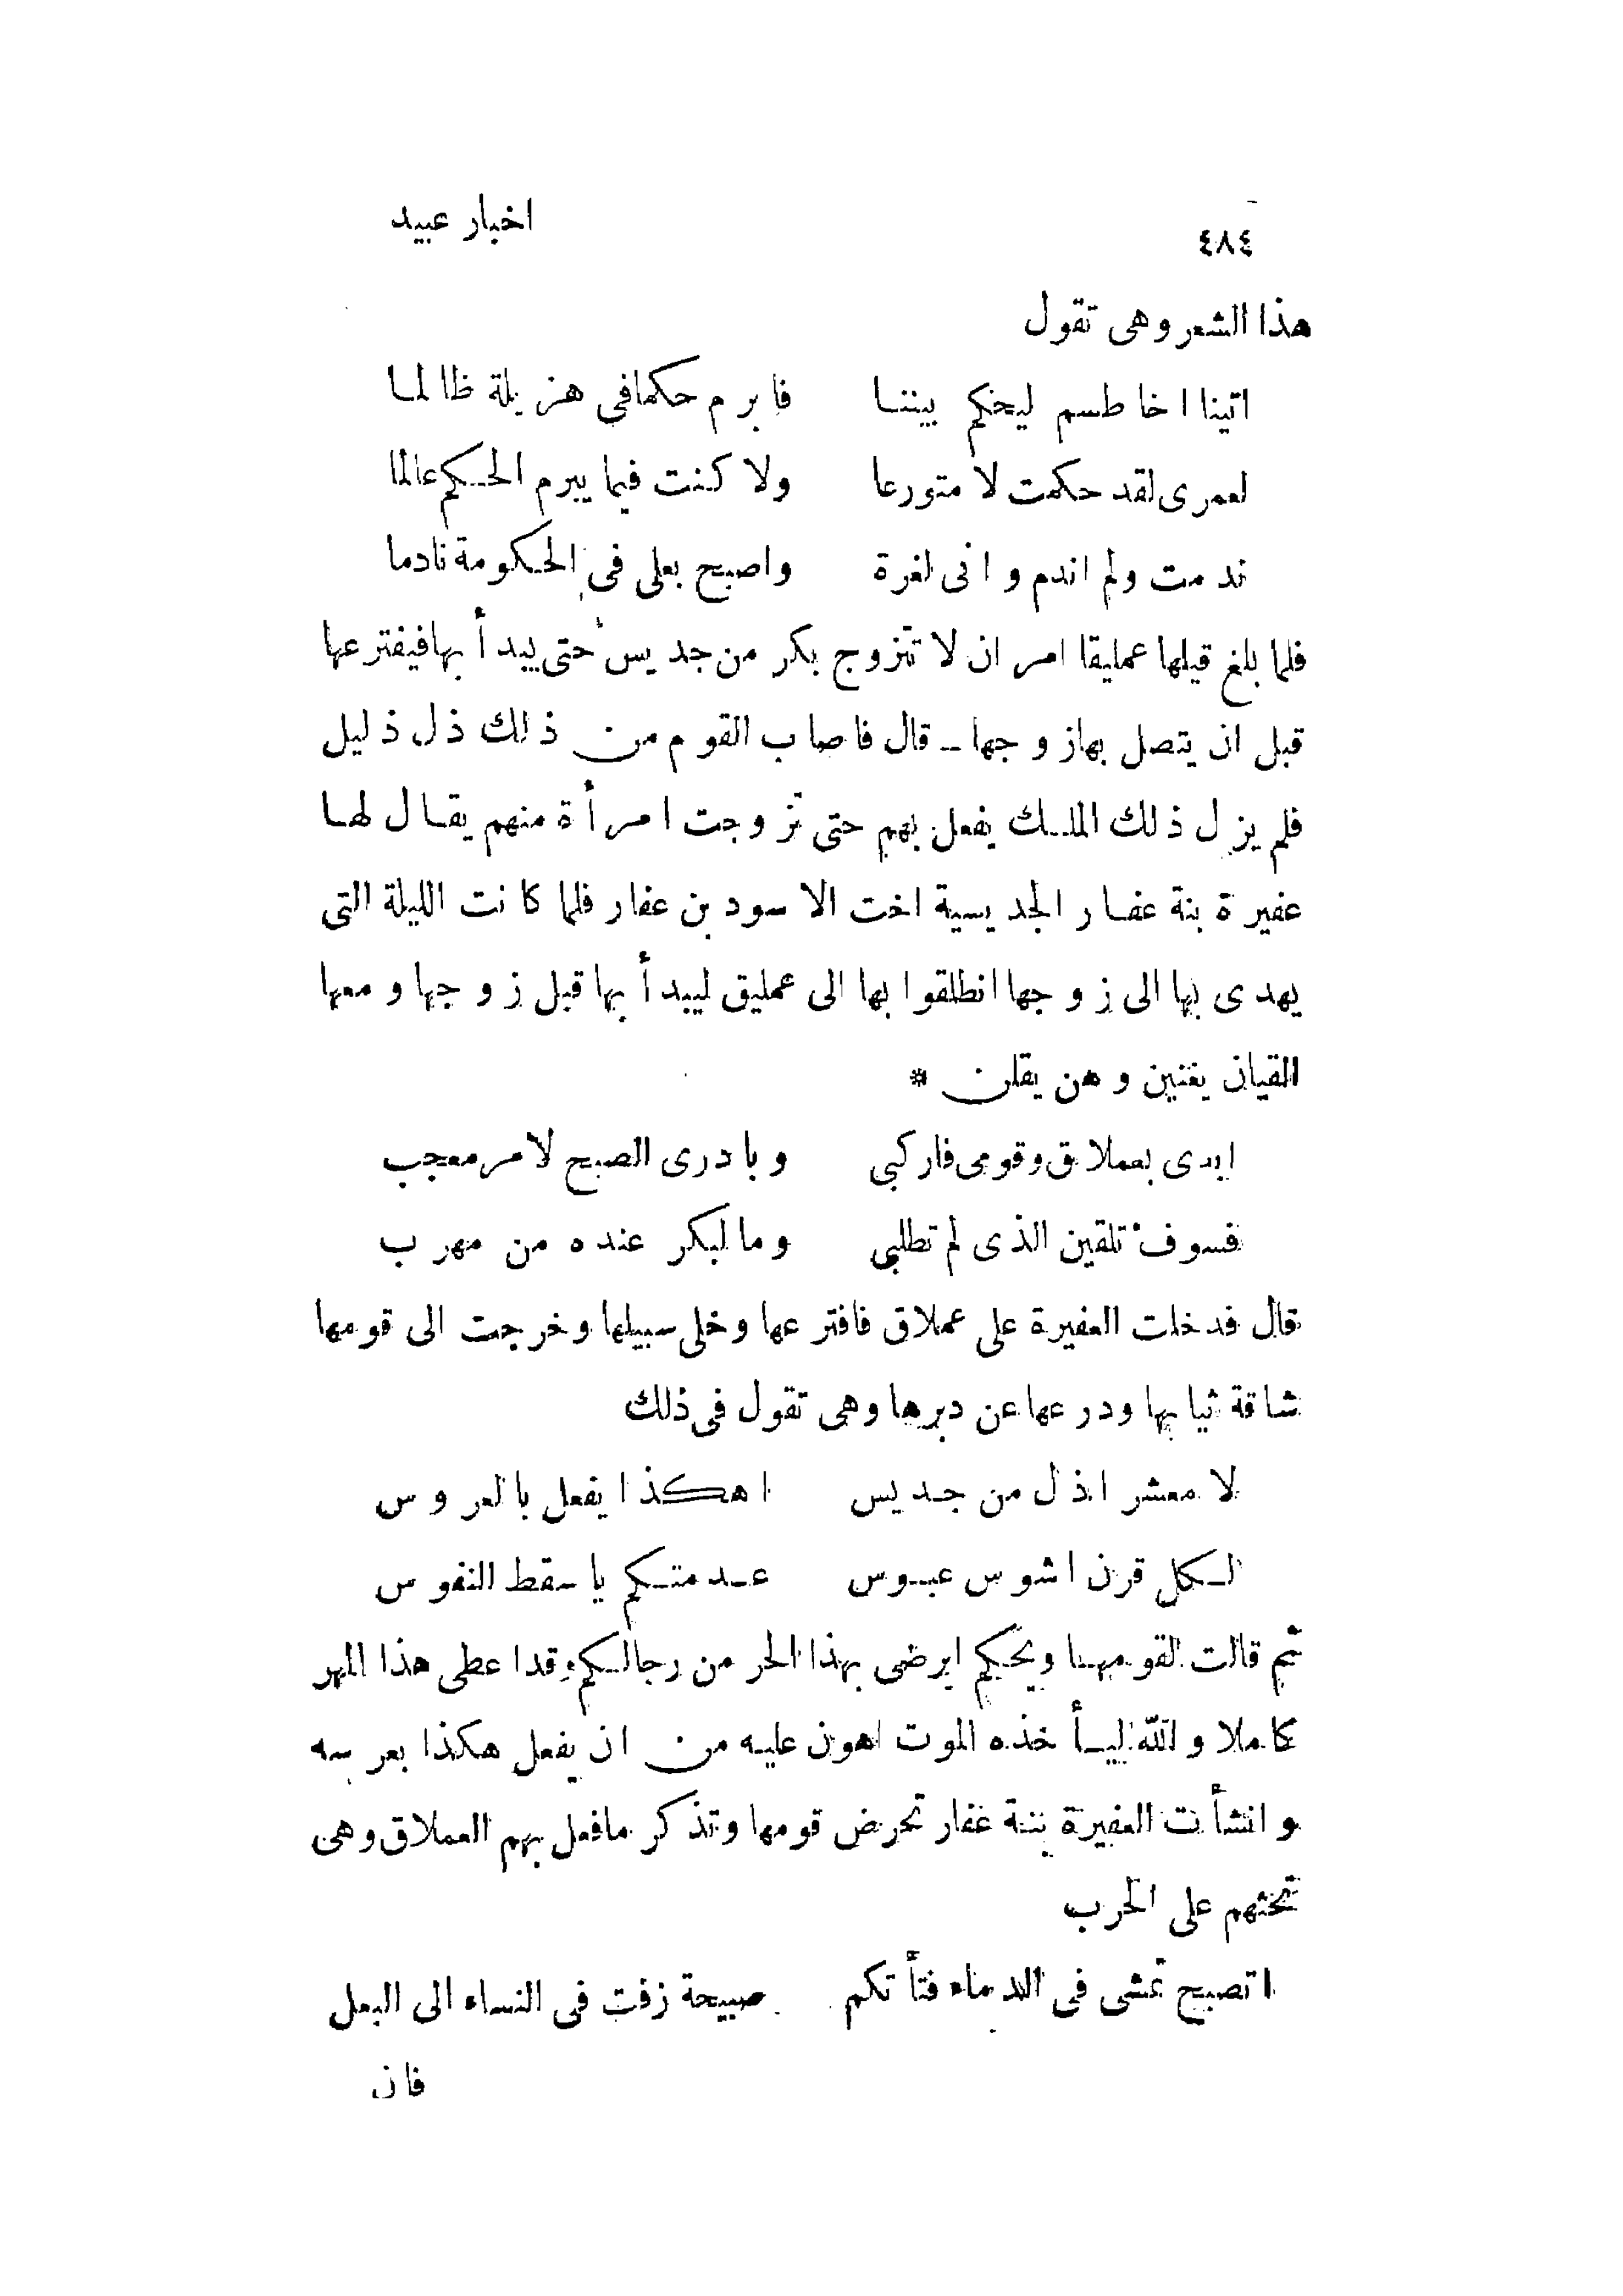 ٤٨٤ اخبار عبيد
هذا الشعر وهى تقول
اتينا اخا طسم ليحكم بيننا فابرم حكما فى هزيلة ظالما
لعمرى لقد حكمت لا متورعا ولا كنت فيما يبرم الحكم عالما
ندمت ولم اندم وانى لغرة واصبح بعلى فى الحكومة نادما
فلما بلغ قيلها عمليقا امر ان لا تتزوج بكر من جديس حتى يبدأ بها فيفترعها
قبل ان يتصل بها زوجها ـ قال فاصاب القوم من ذلك ذل ذليل
فلم يزل ذلك الملك يفعل بهم حتى تزوجت امرأة منهم يقال لها
عفيرة بنة عفار الجديسية اخت الاسود بن عفار فلما كانت الليلة التى
يهدى بها الى زوجها انطلقوا بها الى عمليق ليبدأ بها قبل زوجها ومعها
القيان يغنين وهن يقلن *
ابدى بعملاق وقومى فاركبى وبادرى الصبح لامر معجب
فسوف تلقين الذى لم تطلبى وما لبكر عنده من مهرب
قال فدخلت العفيرة على عملاق فافترعها وخلى سبيلها وخرجت الى قومها
شاقة ثيابها ودرعها عن دبرها وهى تقول فى ذلك
لا معشر اذل من جديس اهكذا يفعل بالعروس
لكل قرن اشوس عبوس عدمتكم يا سقط النفوس
ثم قالت لقومها ويحكم ايرضى بهذا الحر من رجالكم وقد اعطى هذا المهر
كاملا والله ليأخذه الموت اهون عليه من ان يفعل هكذا بعرسه
وانشأت العفيرة بنة غفار تحرض قومها وتذكر ما فعل بهم العملاق وهى
تحثهم على الحرب
اتصبح تمشى فى الدماء فتأتكم صبيحة زفت فى النساء الى البعل
فان